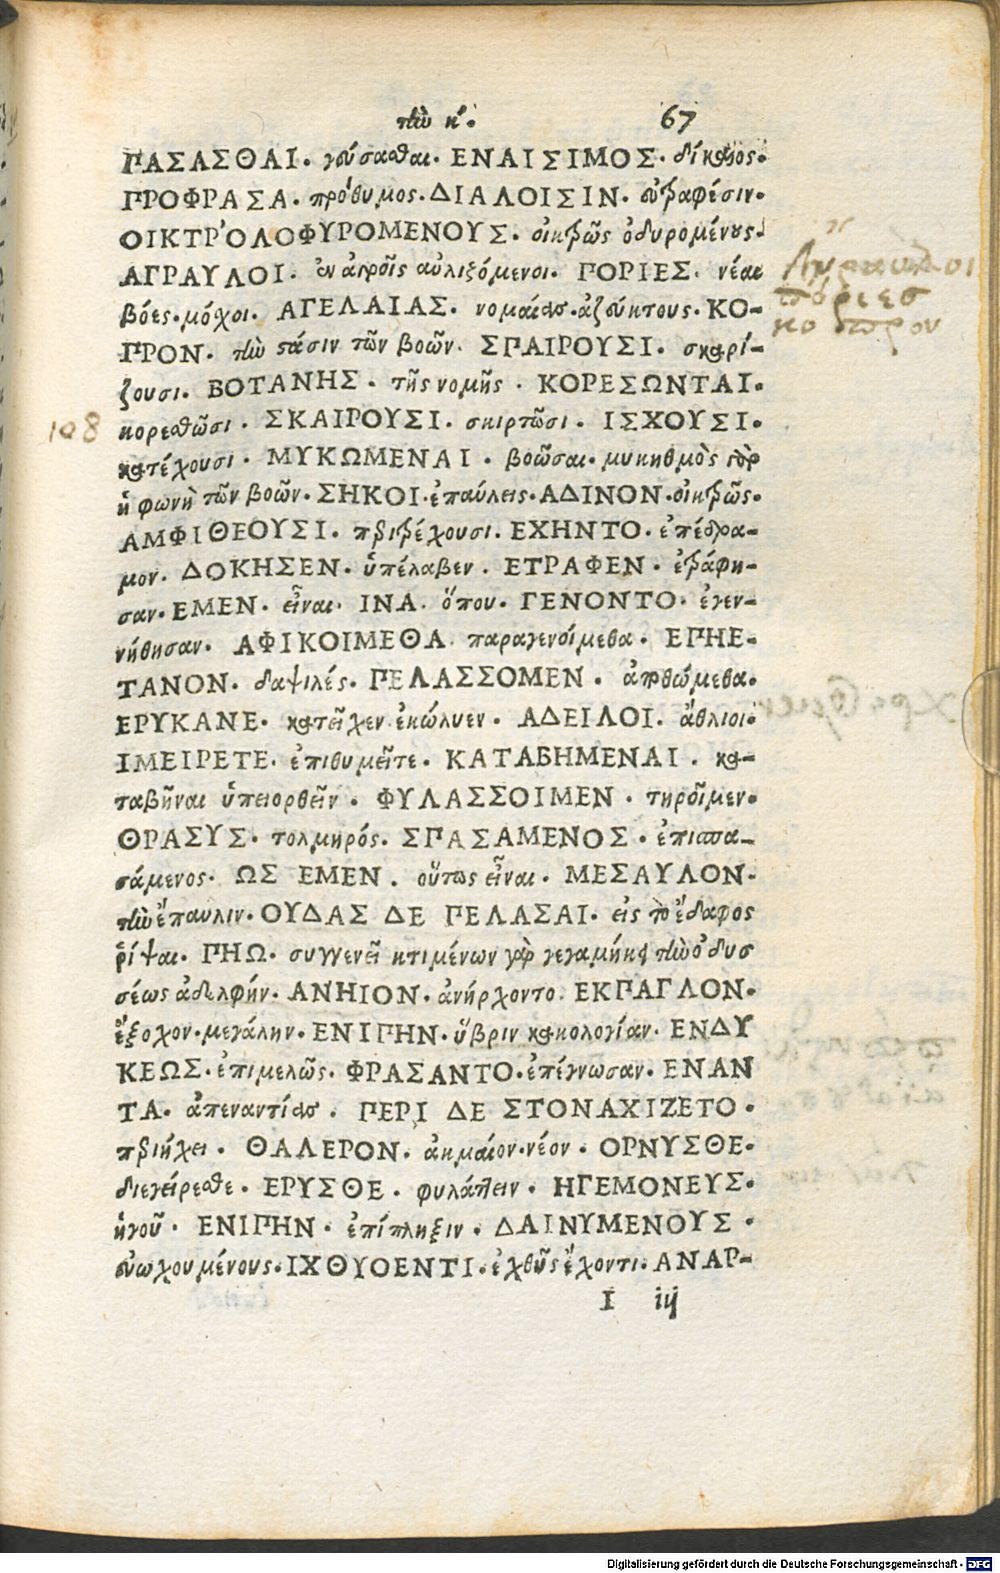 τὴν κ. 67
ΠΑΣΑΣΘΑΙ. γεύσασθαι. ΕΝΑΙΣΙΜΟΣ. δίκαιος.
ΠΡΟΦΡΑΣΑ. πρόθυμος. ΔΙΑΛΟΙΣΙΝ. συβαφέσιν.
ΟΙΚΤΡ'ΟΛΟΦΥΡΟΜΕΝΟΥΣ. οἰκτρῶς ὀδυρομένους.
ΑΓΡΑΥΛΟΙ. ἐν ἀγροῖς αὐλιζόμενοι. ΠΟΡΙΕΣ. νέαι
βόες. μόχοι. ΑΓΕΛΑΙΑΣ. νομαίας. ἀζεύκτους. ΚΟ-
ΠΡΟΝ. τὴν στάσιν τῶν βοῶν. ΣΠΑΙΡΟΥΣΙ. σκαρί-
ζουσι. ΒΟΤΑΝΗΣ. τῆς νομῆς. ΚΟΡΕΣΩΝΤΑΙ.
κορεσθῶσι. ΣΚΑΙΡΟΥΣΙ. σκιρτῶσι. ΙΣΧΟΥΣΙ.
κατέχουσι. ΜΥΚΩΜΕΝΑΙ. βοῶσαι. μυκηθμὸς γὰρ
ἡ φωνὴ τῶν βοῶν. ΣΗΚΟΙ. ἐπαύλεις. ΑΔΙΝΟΝ. οἰκτρῶς.
ΑΜΦΙΘΕΟΥΣΙ. περιτρέχουσι. ΕΧΗΝΤΟ. ἐπέδρα-
μον. ΔΟΚΗΣΕΝ. ὑπέλαβεν. ΕΤΡΑΦΕΝ. ἐτράφη-
σαν. ΕΜΕΝ. εἶναι. ΙΝΑ. ὅπου. ΓΕΝΟΝΤΟ. ἐγεν-
νήθησαν. ΑΦΙΚΟΙΜΕΘΑ. παραγενοίμεθα. ΕΠΗΕ-
ΤΑΝΟΝ. δαψιλές. ΠΕΛΑΣΣΟΜΕΝ.
ΕΡΥΚΑΝΕ. κατεῖχεν. ἐκώλυεν. ΑΔΕΙΛΟΙ. ἄθλιοι.
ΙΜΕΙΡΕΤΕ. ἐπιθυμεῖτε. ΚΑΤΑΒΗΜΕΝΑΙ. κα-
ταβῆναι ὑπειορθεῖν. ΦΥΛΑΣΣΟΙΜΕΝ. τηροῖμεν.
ΘΡΑΣΥΣ. τολμηρός. ΣΠΑΣΑΜΕΝΟΣ. ἐπισπα-
σάμενος. ΩΣ ΕΜΕΝ. οὕτως εἶναι. ΜΕΣΑΥΛΟΝ.
τὴν ἔπαυλιν. ΟΥΔΑΣ ΔΕ ΠΕΛΑΣΑΙ. εἰς τὸ ἔδαφος
ῥίψαι. ΠΗΩ. συγγενεῖ κτιμένων γὰρ γεγαμήκει τὴν ὀδυσ
σέως ἀδελφήν. ΑΝΗΙΟΝ. ἀνήρχοντο. ΕΚΠΑΓΛΟΝ.
ἔξοχον. μεγάλην. ΕΝΙΠΗΝ. ὕβριν κακολογίαν. ΕΝΔΥ
ΚΕΩΣ. ἐπιμελῶς. ΦΡΑΣΑΝΤΟ. ἐπέγνωσαν. ΕΝΑΝ
ΤΑ. ἀπεναντίας. ΠΕΡΙ ΔΕ ΣΤΟΝΑΧΙΖΕΤΟ.
περιήχει. ΘΑΛΕΡΟΝ. ἀκμαῖον. νέον. ΟΡΝΥΣΘΕ.
διεγείρεσθε. ΕΡΥΣΘΕ. φυλάττειν. ΗΓΕΜΟΝΕΥΣ.
ἡγοῦ. ΕΝΙΠΗΝ. ἐπίπληξιν. ΔΑΙΝΥΜΕΝΟΥΣ.
εὐωχουμένους. ΙΧΘΥΟΕΝΤΙ. ἰχθῦς ἔχοντι. ΑΝΑΡ-
I iij
Ἄγραυλοι
πόριες
κόπρον
108